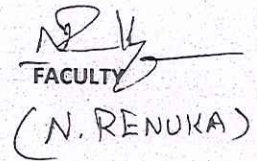 FACULTY
(N. RENUKA)